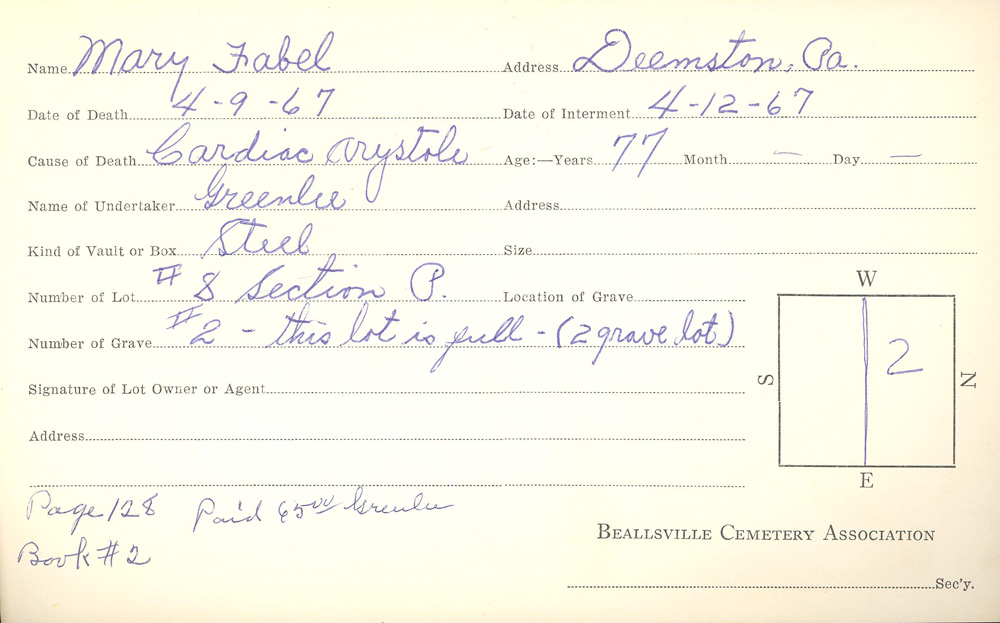 Name Mary Fabel Address Deemston, Pa.
Date of Death 4-9-67 Date of Interment 4-12-67
Cause of Death Cardiac Arystole Age:—Years 77 Month — Day —
Name of Undertaker Greenlee Address
Kind of Vault or Box Steel Size
Number of Lot #8 Section P. Location of Grave
Number of Grave #2 - this lot is full - (2 grave lot)
Signature of Lot Owner or Agent
Address
W
S
2
N
E
Page 128 Paid 65.00 Greenlee
Book #2
BEALLSVILLE CEMETERY ASSOCIATION
Sec'y.